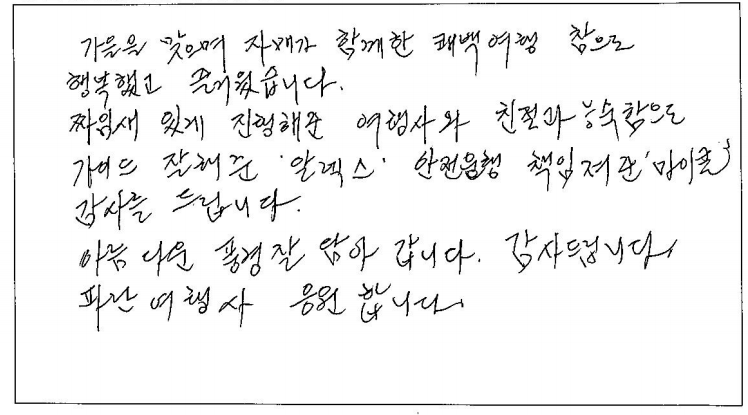 가을을 맞으며 자매가 함께한 퀘백여행 참으로
행복했고 즐거웠습니다.
짜임새 있게 진행해준 여행사와 친절과 능숙함으로
가이드 잘해준 '알렉스' 안전운행 책임져준 '마이클'
감사를 드립니다.
아름다운 풍경 잘 담아 갑니다. 감사드립니다
파란여행사 응원합니다